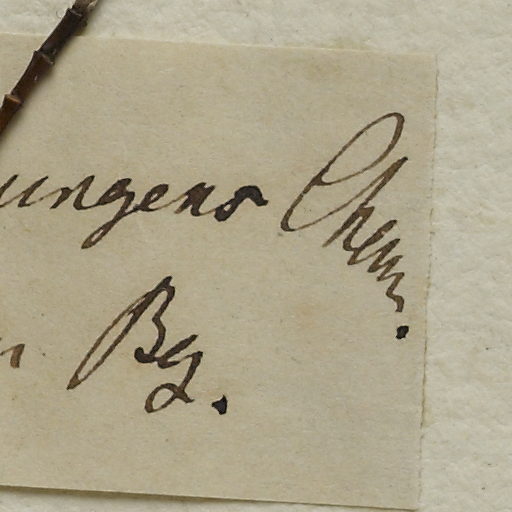 ungens Cham.
n Bg.